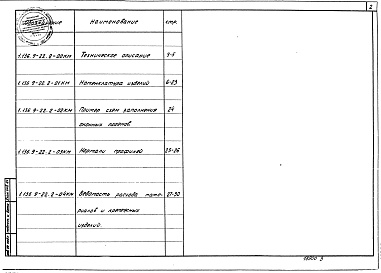 2
Наименование
стр.
1.136.9-22.2-00КМ Техническое описание 3-5
1.136.9-22.2-01КМ Номенклатура изделий 6-23
1.136.9-22.2-02КМ Пример схем заполнения 24
оконных проемов
1.136.9-22.2-03КМ Чертежи профилей 25-26
1.136.9-22.2-04КМ Ведомость расхода мате- 27-30
риалов и крепежных
изделий.